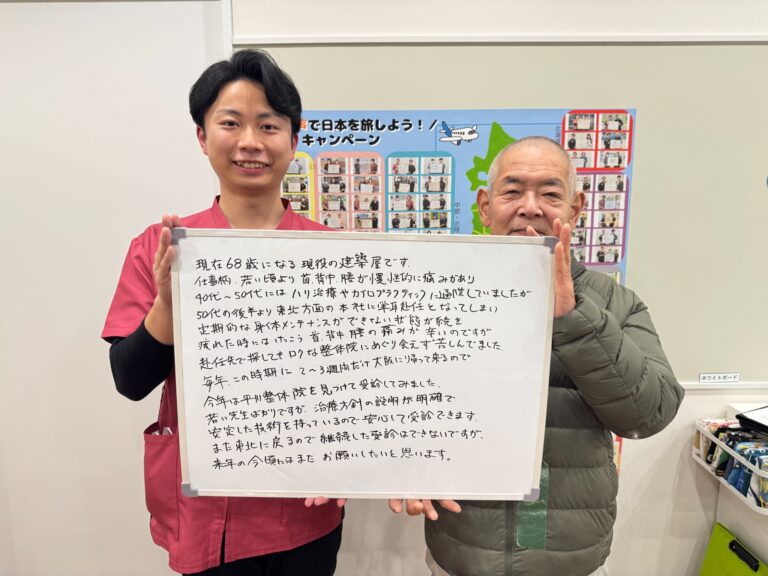 声で日本を旅しよう!
キャンペーン
北海道
現在68歳になる現役の建築屋です。
仕事柄、若い頃より首、背中、腰が慢性的に痛みがあり
40代〜50代にはハリ治療やカイロプラクティックに通院していましたが
50代の後半より東北方面の本社に単身赴任となってしまい
定期的な身体メンテナンスができない状態が続き
疲れた時にはけっこう首、背中、腰の痛みが辛いのですが
赴任先で探してもロクな整体院にめぐり会えず苦しんでました。
毎年、この時期に2〜3週間だけ大阪に帰って来るので
今年は平川整体院を見つけて受診してみました。
若い先生ばかりですが、治療方針の説明が明確で
安定した技術を持っているので安心して受診できます。
また東北に戻るので継続した受診はできないですが、
来年の今頃にはまたお願いしたいと思います。
ホワイトボード